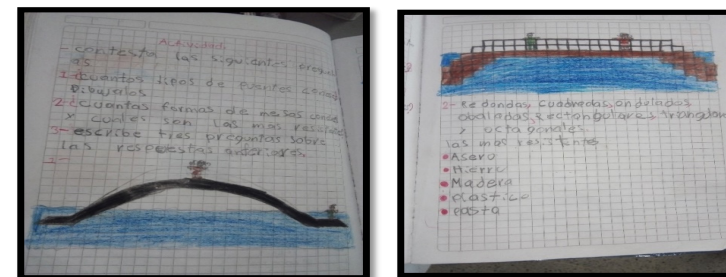 Actividad
- contesta las siguientes pregu
as
1- Cuantos tipos de puentes conoces
Dibujelos
2- ¿cuantas formas de mesas conoce
y cuales son las mas resistes
3- escribe tres preguntas sobre
las respuestas anteriores
1-
2- Redondas, cuadradas, onduladas
obaladas, Rectangulares triangulares
y octagonales
las mas resistentes
• Asero
• Hierro
• Madera
• plastico
• pasta